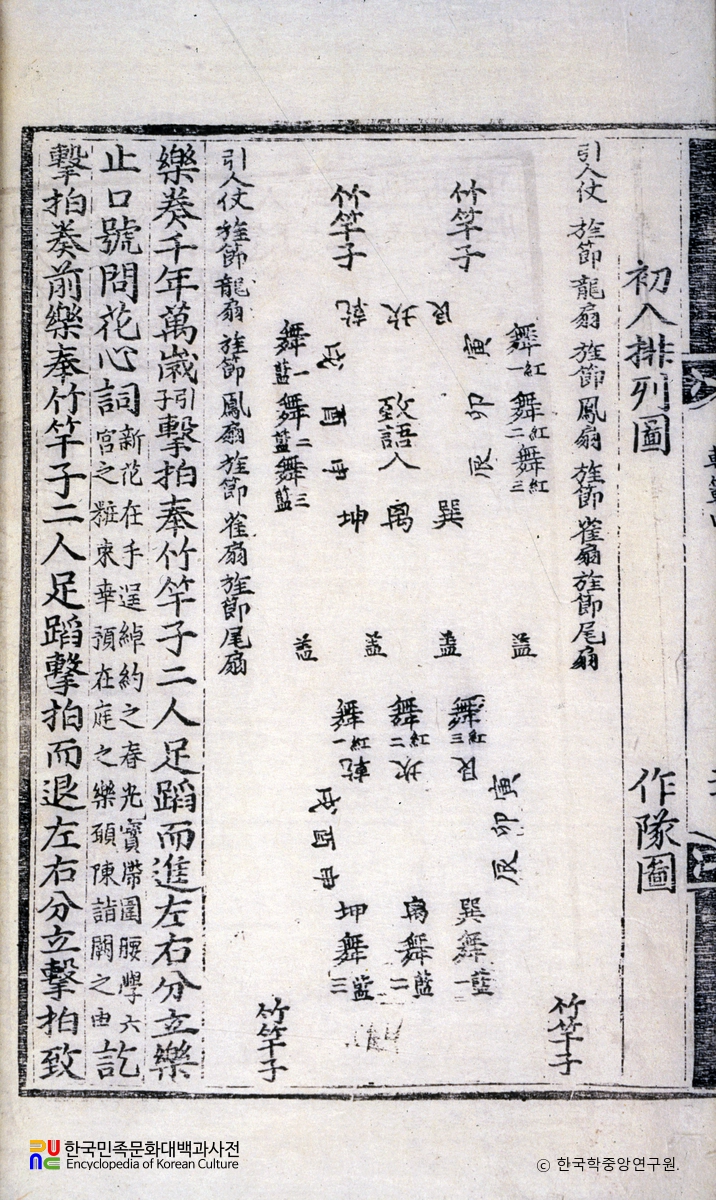 初入排列圖 作隊圖
引人仗 㫌節 龍扇 㫌節 鳳扇 㫌節 雀扇 㫌節 尾扇
竹竿子 竹竿子
乾 坎 艮
戌 酉 申
寅 卯 辰
舞一紅 舞二紅 舞三紅
舞一藍 舞二藍 舞三藍
致語人
坤 离 巽
盖 盖 盖 盖
舞一紅 舞二紅 舞三紅
乾 坎 艮
戌 酉 申
寅 卯 辰
坤 离 巽
舞三藍 舞二藍 舞一藍
竹竿子 竹竿子
引人仗 㫌節 龍扇 㫌節 鳳扇 㫌節 雀扇 㫌節 尾扇
樂奏千年萬歲引子擊拍奉竹竿子二人足蹈而進左右分立樂
止口號問花心詞新花在手逞綽約之春光寶帶圍腰學六宮之粧束幸預在庭之樂頭陳詣闕之由訖
擊拍奏前樂奉竹竿子二人足蹈擊拍而退左右分立擊拍致
한국민족문화대백과사전
Encyclopedia of Korean Culture
© 한국학중앙연구원.